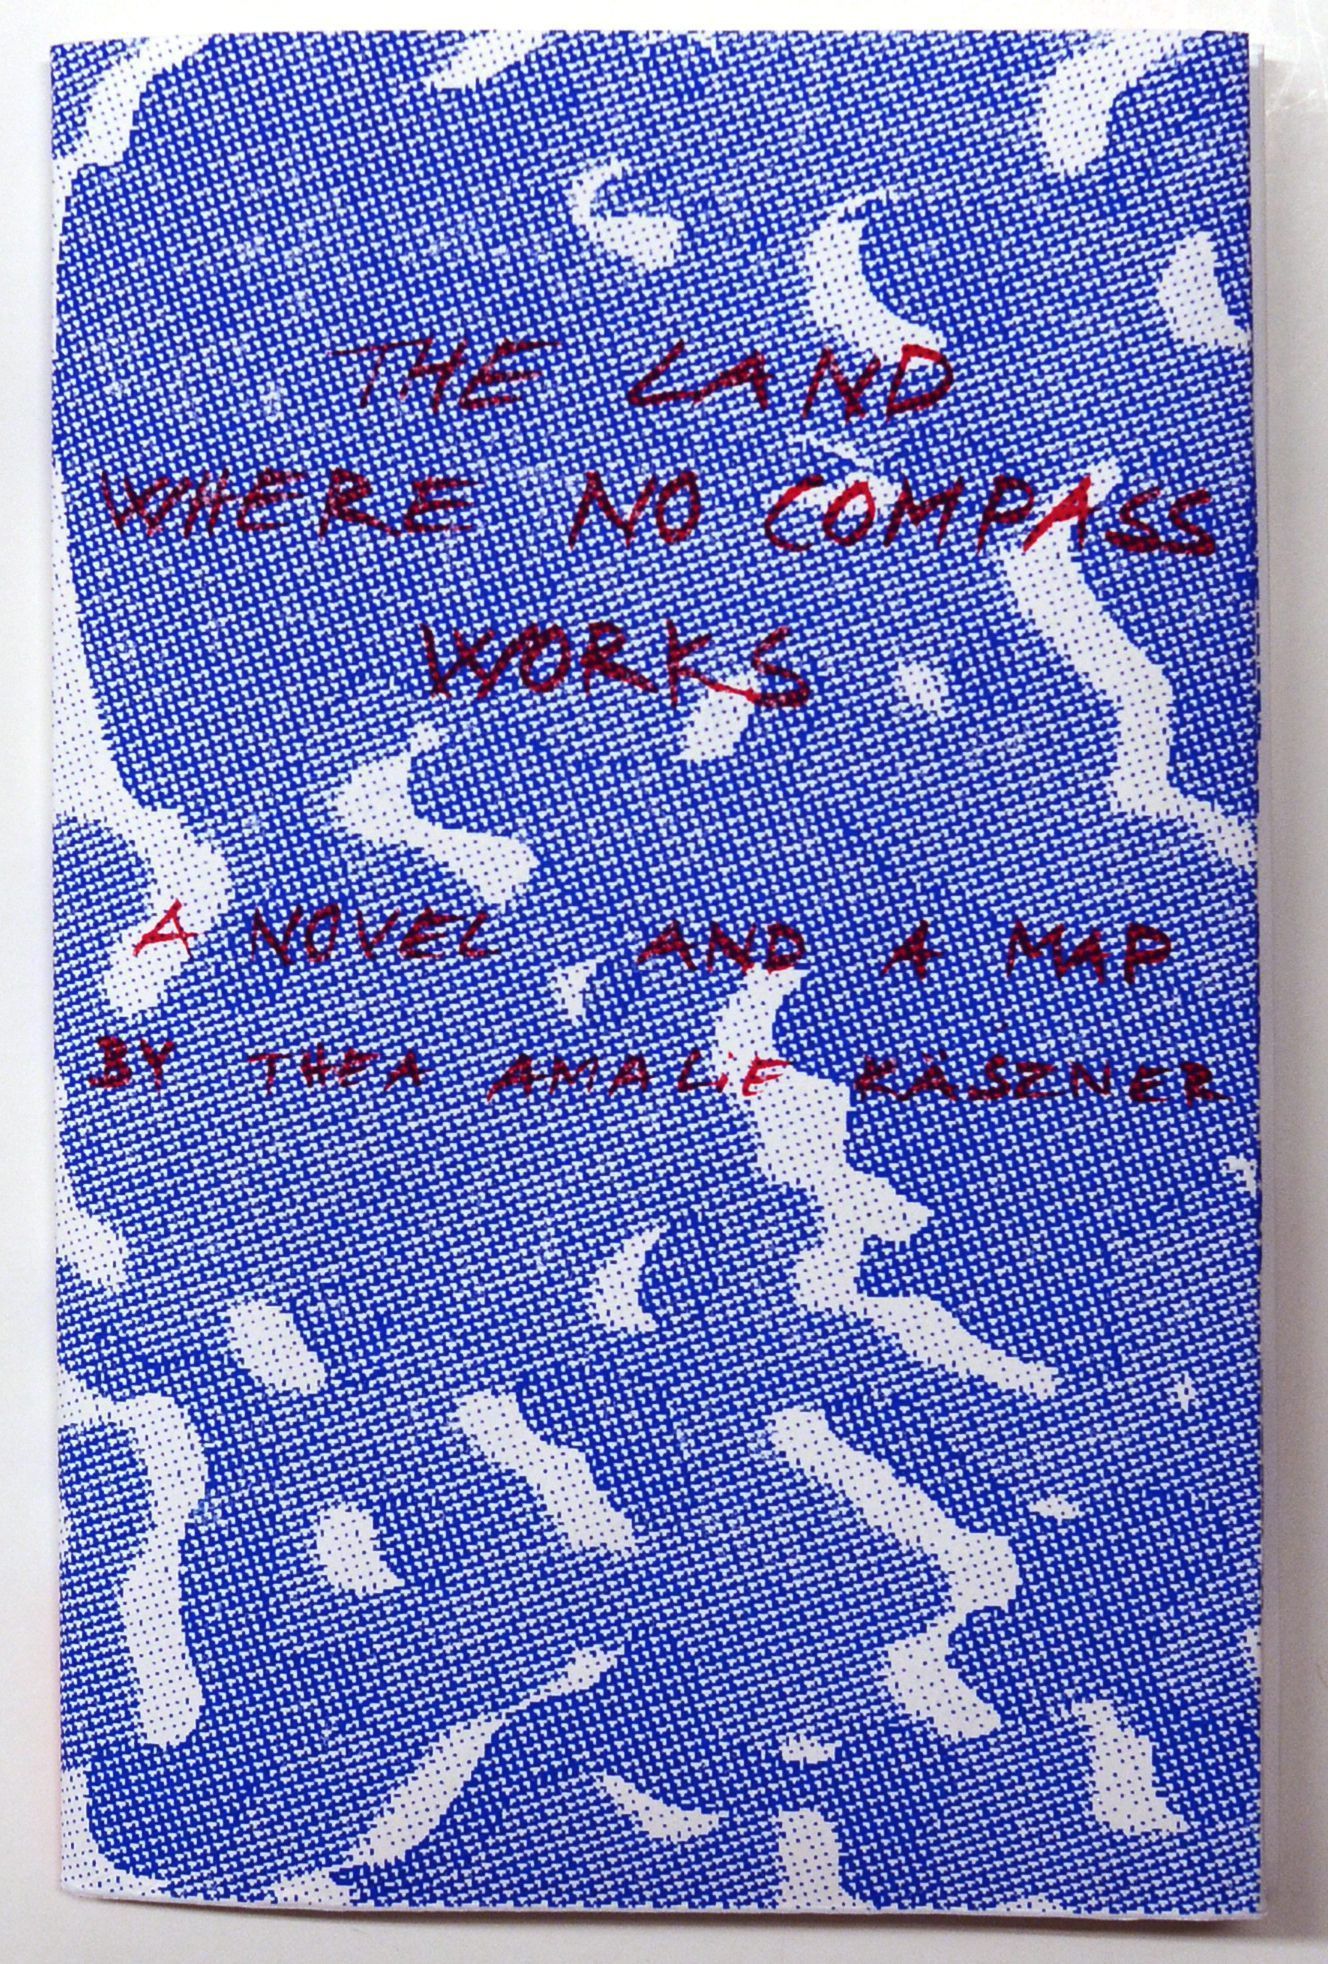 THE LAND
WHERE NO COMPASS
WORKS
A NOVEL AND A MAP
BY THEA AMALIE KÄSZNER